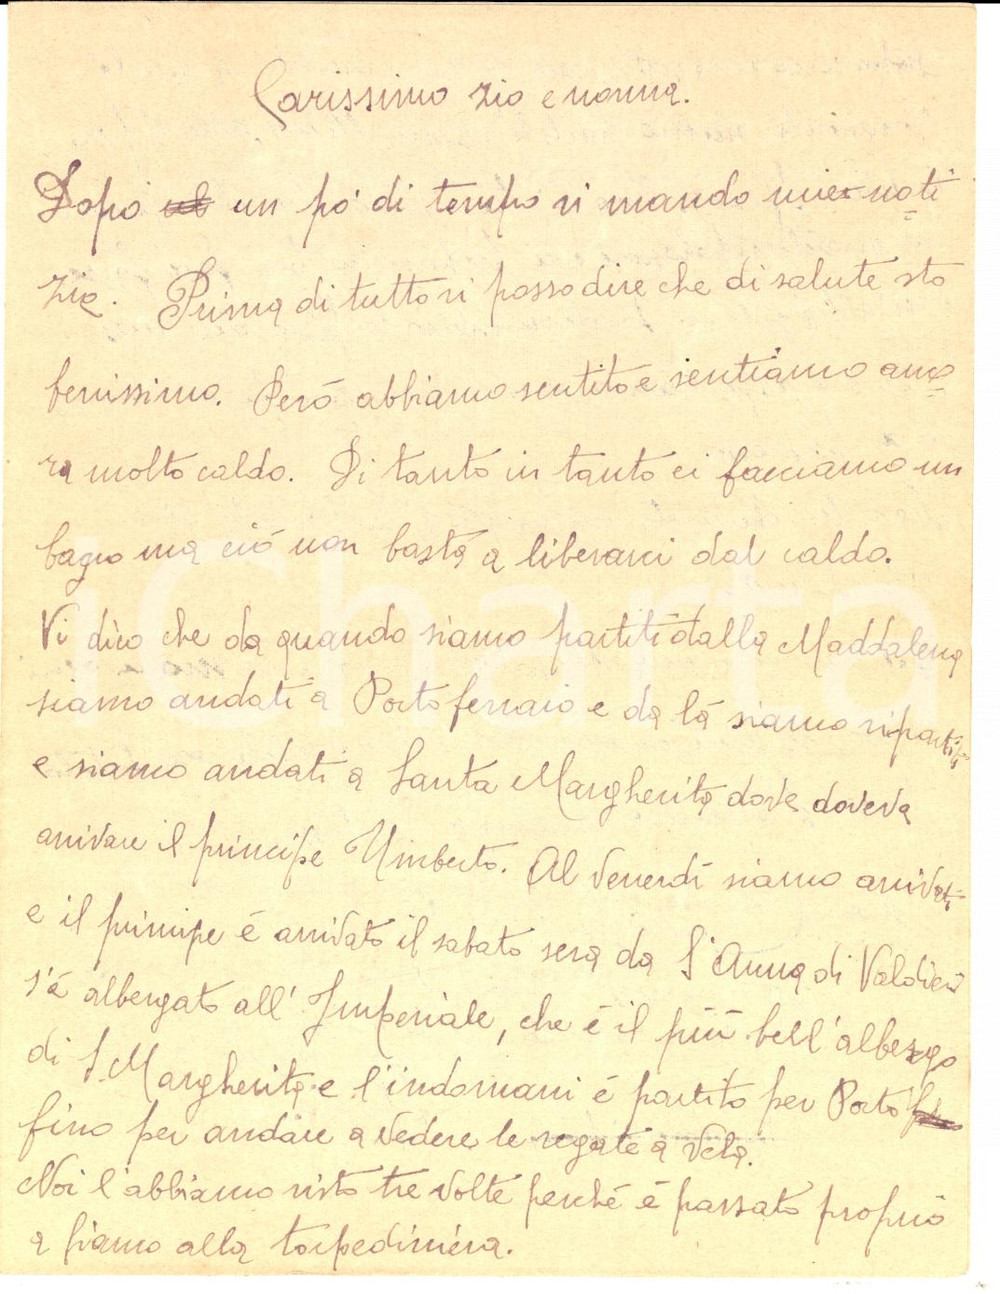 Carissimo zio e nonna.
Dopo un pó di tempo vi mando mie noti
zie. Prima di tutto vi posso dire che di salute sto
benissimo. Peró abbiamo sentito e sentiamo anco
ra molto caldo. Di tanto in tanto ci facciamo un
bagno ma ció non basta a liberarci dal caldo.
Vi dico che da quando siamo partiti dalla Maddalena
siamo andati a Porto ferraio e da lá siamo ripartiti
e siamo andati a Santa Margherita dove doveva
arrivare il principe Umberto. Al Venerdí siamo arrivati
e il principe é arrivato il sabato sera da S'Anna di Valdieri
s'é albergato all'Imperiale, che é il piú bell'albergo
di S. Margherita e l'indomani é partito per Porto
fino per andare a vedere le regate a vela.
Noi l'abbiamo visto tre volte perché é passato proprio
a fianco alla torpediniera.
iCharta